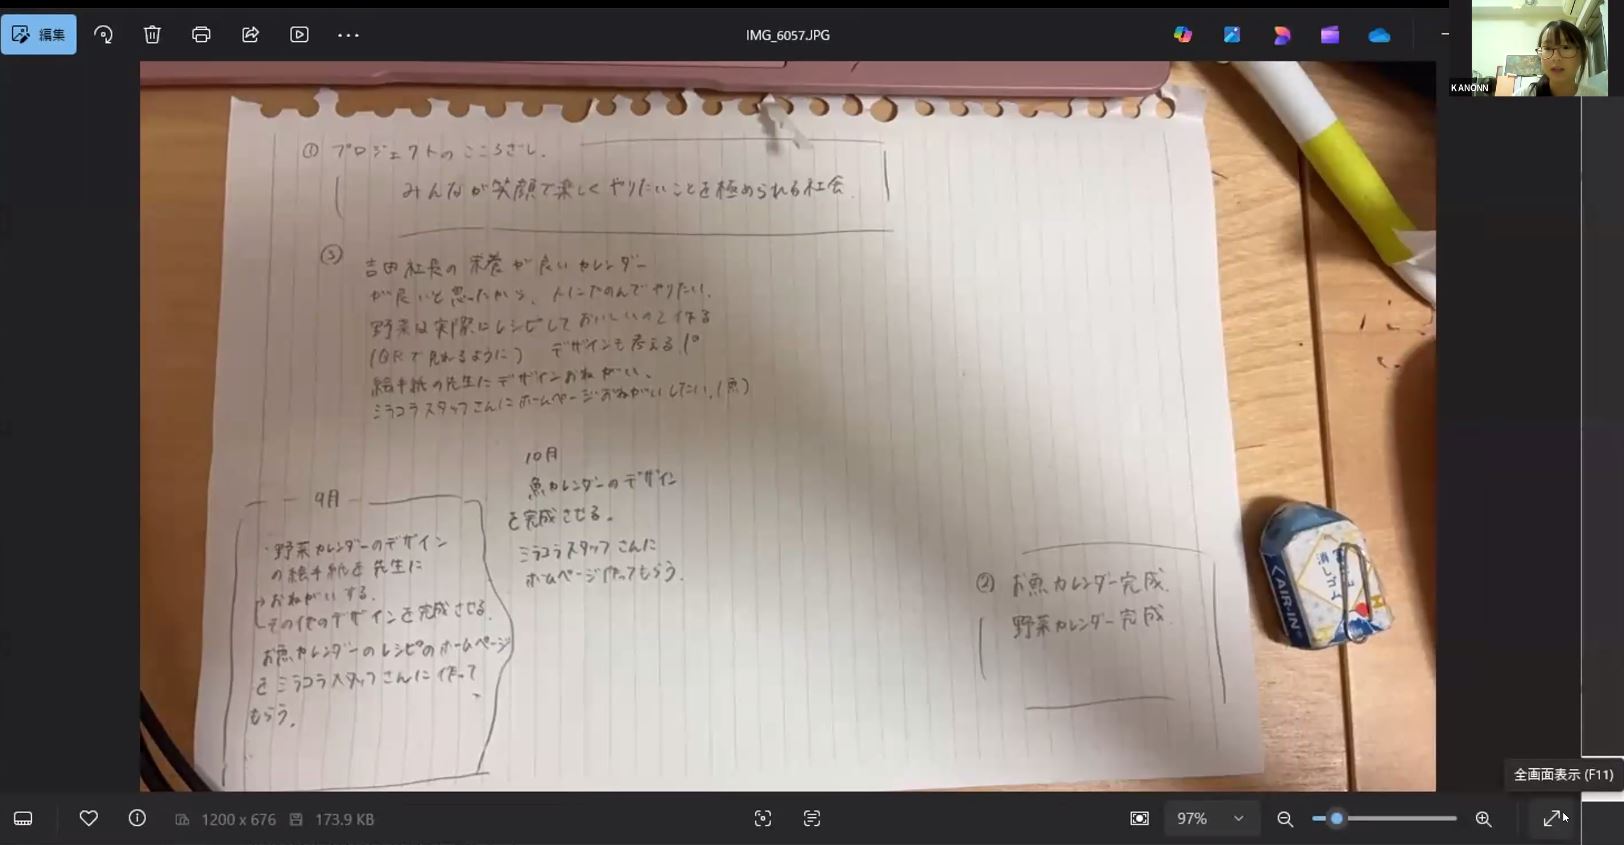 編集
IMG_6057.JPG
KANONN
① プロジェクトのこころざし.
みんなが笑顔で楽しくやりたいことを極められる社会.
③
吉田社長の栄養が良いカレンダー
が良いと思ったから、たのんでやりたい.
野菜は実際にレシピしておいしいのを作る
(QRで見れるように) デザインも考える.
絵手紙の先生にデザインおねがい.
ミラコラスタッフさんにホームページおねがいしたい.(魚)
9月
・野菜カレンダーのデザイン
の絵手紙を先生に
おねがいする.
その他のデザインを完成させる.
お魚カレンダーのレシピのホームページ
をミラコラスタッフさんに作って
もらう.
10月
魚カレンダーのデザイン
を完成させる.
ミラコラスタッフさんに
ホームページ作ってもらう.
② お魚カレンダー完成.
野菜カレンダー完成.
AIR-IN
消しゴム
全画面表示 (F11)
1200 x 676
173.9 KB
97%